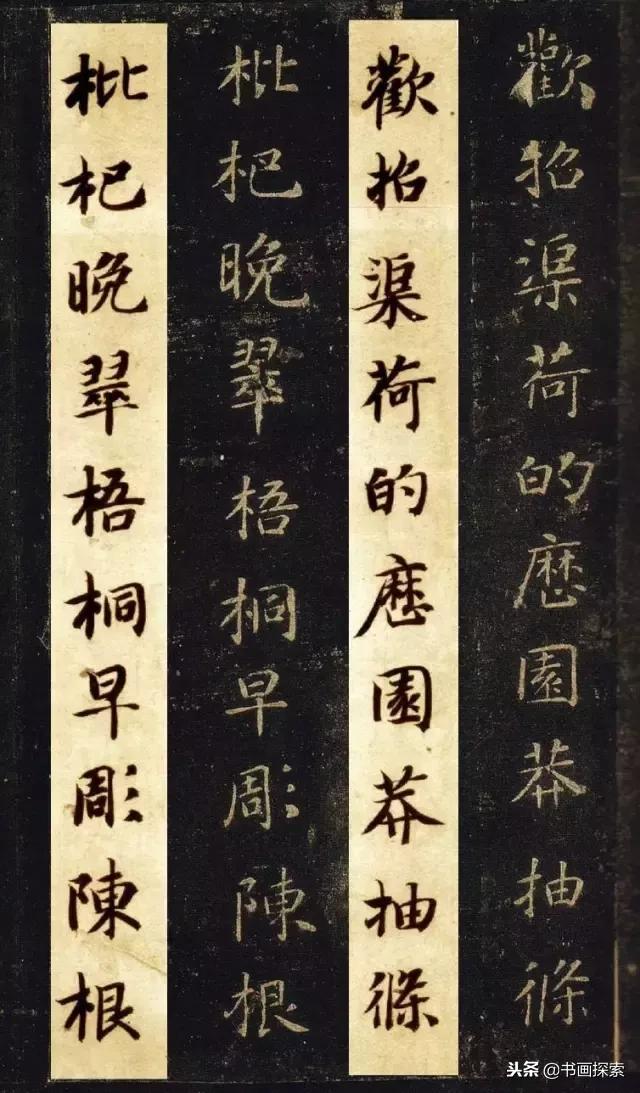 歡招渠荷的歷園莽抽條
歡招渠荷的歷園莽抽條
枇杷晚翠梧桐早彫陳根
枇杷晚翠梧桐早彫陳根
头条 @书画探索